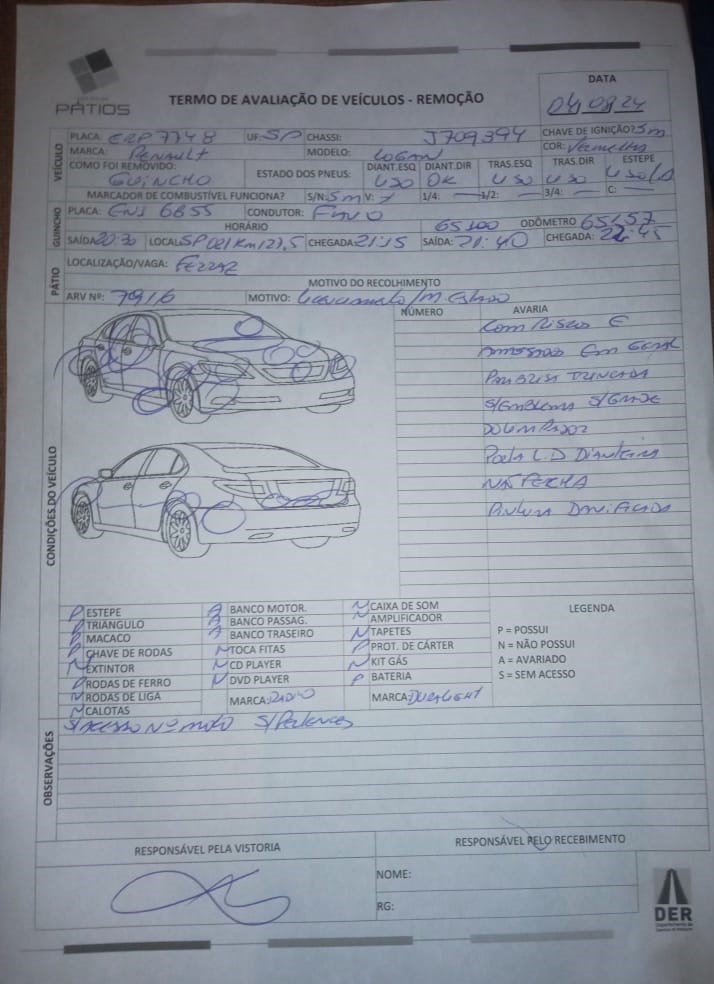 PÁTIOS
TERMO DE AVALIAÇÃO DE VEÍCULOS - REMOÇÃO
DATA
04/08/24
VEÍCULO
PLACA: ERP 7748 UF: SP CHASSI: J709394 CHAVE DE IGNIÇÃO? Sm
MARCA: Renault MODELO: LOGAN COR: Vermelho
COMO FOI REMOVIDO: GUINCHO ESTADO DOS PNEUS: DIANT.ESQ USO DIANT.DIR OK TRAS.ESQ USO TRAS.DIR USO ESTEPE USO
MARCADOR DE COMBUSTÍVEL FUNCIONA? S/N: Sm V: 1/4: 1/2: 3/4: C:
GUINCHO
PLACA: 6855 CONDUTOR:
HORÁRIO 65100 ODÔMETRO 65157
SAÍDA 20:30 LOCAL: SP 021 Km 121,5 CHEGADA: 21:15 SAÍDA: 21:40 CHEGADA: 22:45
PÁTIO
LOCALIZAÇÃO/VAGA: FERRAZ
MOTIVO DO RECOLHIMENTO
ARV Nº: 7916 MOTIVO:
CONDIÇÕES DO VEÍCULO
NÚMERO AVARIA
Com Risco E
Amassado Em Geral
Parabrisa Trincada
S/Emblema S/Grade
Porta L.D Dianteira
Não Fecha
Pintura Danificada
P ESTEPE A BANCO MOTOR. N CAIXA DE SOM
P TRIANGULO A BANCO PASSAG. N AMPLIFICADOR
P MACACO A BANCO TRASEIRO N TAPETES
P CHAVE DE RODAS N TOCA FITAS P PROT. DE CÁRTER
N EXTINTOR N CD PLAYER N KIT GÁS
P RODAS DE FERRO N DVD PLAYER P BATERIA
N RODAS DE LIGA MARCA: RADIO MARCA: DURALIGHT
N CALOTAS
LEGENDA
P = POSSUI
N = NÃO POSSUI
A = AVARIADO
S = SEM ACESSO
OBSERVAÇÕES
S/Acesso Nº moto S/Pertences
RESPONSÁVEL PELA VISTORIA
RESPONSÁVEL PELO RECEBIMENTO
NOME:
RG:
DER